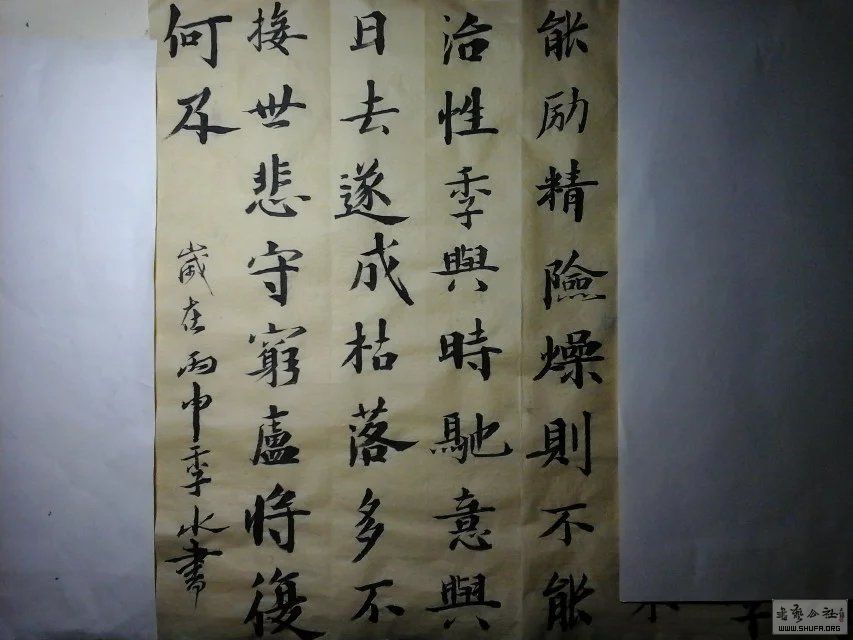 能励精險燥則不能
治性季與時馳意與
日去遂成枯落多不
接世悲守窮廬将復
何及
歲在丙申季水書
书艺公社
WWW.SHUFA.ORG